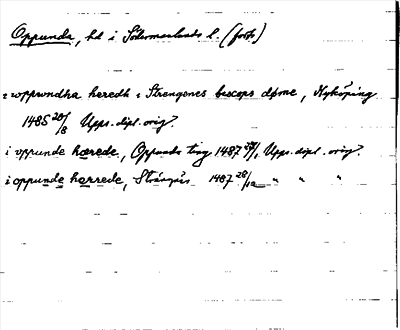 Oppunda, hd i Södermanlands l. (forts)
i wpprwndha heredh i Strengenes bescops døme, Nyköping
1485 20/8 Upps. dipl. orig.
i oppunde hærede, Oppunda ting 1487 Upps. dipl. orig.
i oppunde herrede, Strängnäs 1487 28/12 " " "